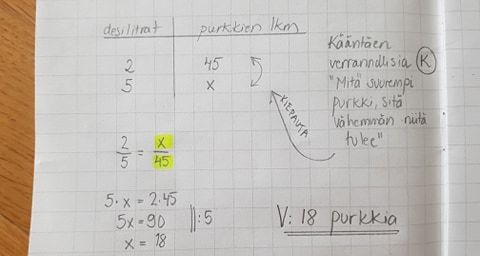 desilitrat purkkien lkm
2 45
5 x
Kääntäen
verrannollisia K
"Mitä suurempi
purkki, sitä
vähemmän niitä
tulee"
KIEPAUTA
2/5 = x/45
5·x = 2·45
5x = 90 ||:5
x = 18
V: 18 purkkia